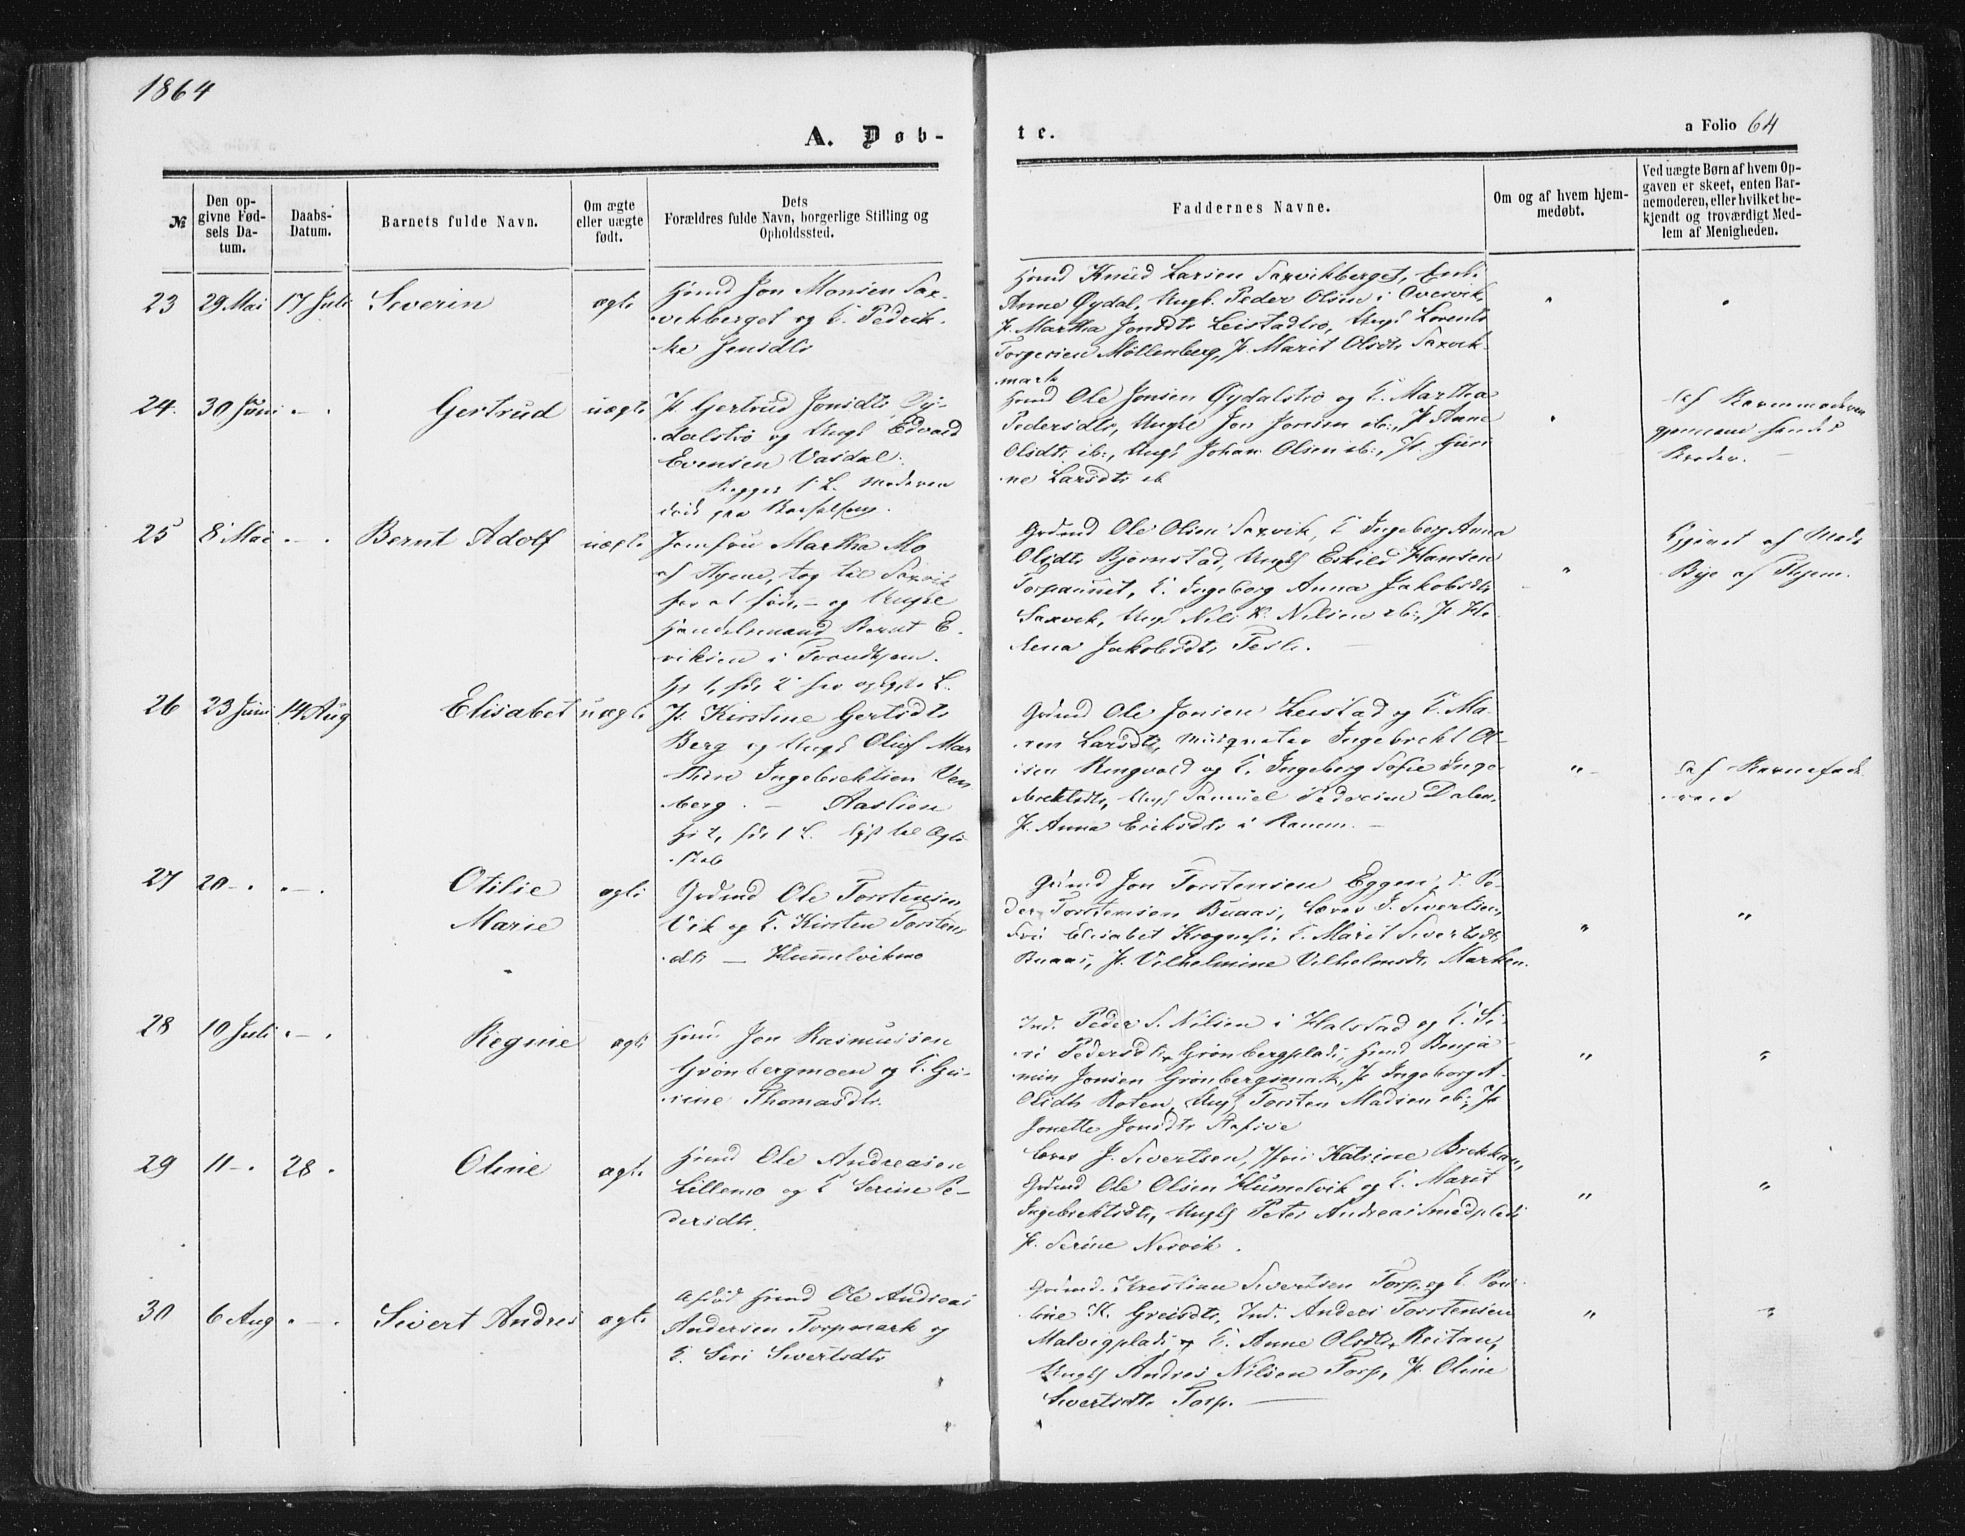 1864
A. Døb-
te.
a Folio 64
№
Den op-
givne Fød-
sels Da-
tum.
Daabs-
Datum.
Barnets fulde Navn.
Om ægte
eller uægte
født.
Dets
Forældres fulde Navn, borgerlige Stilling og
Opholdssted.
Faddernes Navne.
Om og af hvem hjem-
medøbt.
Ved uægte Børn af hvem Op-
gaven er skeet, enten Bar-
nemoderen, eller hvilket be-
kjendt og troværdigt Med-
lem af Menigheden.
23 29 Mai 17 Juli Severin ægte
Hmd Jon Monsen Sax-
vikberget og E.
Hmd Knud Larsen Saxvikberget,
Anne Øydal, Ungk. Peder Olsen i Overvik,
P. Martha Jonsdtr Leistadtrø, Ungk Lorents
Torgersen Møllenberg, P. Marit Olsdtr Saxvik-
mark
24. 30 Juni - Gertrud uægte
P. Gertrud Jonsdtr Øy-
dalstrø og Ungk Edvard
Evensen Vasdal.
1 L. Moderen
Hmd Ole Jonsen Øydalstrø og E. Martha
Pedersdtr, Ungk Jon Jonsen ib:, P. Anne
Olsdtr ib:, Ungk Johan Olsen ib:, P. Guri-
ne Larsdtr ib
Af Barnemoderen
gjennem hendes
Broder.
25 8 Mai - Bernt Adolf uægte
Jomfru Martha Mo
af Stjørd., tog til Saxvik
for at føde, - og Ungk
Handelsmand Bernt E-
riksen i Trondhjem.
Grdmd Ole Olsen Saxvik, E. Ingeborg Anna
Olsdtr Bjørnstad, Ungk Eskild Hansen
Torpaunet, E. Ingeborg Anna Jakobsdtr
Saxvik, Ungk Nils K. Nilsen ib:, P. He-
lena Jakobsdtr Fesk.
af Mads
Bye af Thjem.
26 23 Juni 14 Aug Elisabet uægte
P. Kirstine Gertsdtr
Berg og Ungk Oluf Mar
thin Ingebrektsen Ven
berg. - Aaslien
Grdmd Ole Jonsen Leistad og E. Ma-
ren Larsdtr, Ingebrekt Ol-
sen Ringvold og E. Ingeborg Sofie Inge-
brektsdtr, Ungk Samuel Pedersen Dalen,
P. Anna Eriksdtr i Ranem. -
Af Barnefade-
ren
27 20 - - Otilie
Marie ægte
Grdmd Ole Torstensen
Vik og E. Kirsten Torstens
dtr - Hummelvikmo
Grdmd Jon Torstensen Eggen, E. Pe-
der Torstensen Buaas, Lærer J. Sivertsen,
Elisabet E. Marit Sivertsdtr
Buaas, P. Vilhelmine Vilhelmsdtr Marken.
28 10 Juli - Regine ægte
Hmd Jon Rasmussen
Grønbergmoen og E. Gu-
rine Thomasdtr.
Ind. Peder S. Nilsen i Halstad og E. Si-
ri Pedersdtr Grønbergplads, Hmd Benja-
min Jonsen Grønbergsmark, P. Ingeborg A.
Olsdtr Roten, Ungk Torsten Madsen ib:, P.
Jonette Jonsdtr
29 11 - 28 Oline ægte
Hmd Ole Andreasen
Lillemo og E. Serine Pe-
dersdtr.
Lærer J. Sivertsen, Katrine Brekkan,
Grdmd Ole Olsen Hummelvik og E. Marit
Ingebrektsdtr, Ungk Peter Andreas Smedplads
P. Serine Nesvik.
30 6 Aug - Sivert Andreas ægte
Afdød Hmd Ole Andreas
Andersen Torpmark og
E. Siri Sivertsdtr
Grdmd. Kristian Sivertsen Torp og E. Pau-
line K. Ind. Anders Torstensen
Malvigplads og E. Anne Olsdtr Reitan,
Ungk Andres Nilsen Torp, P. Oline
Sivertsdtr Torp.